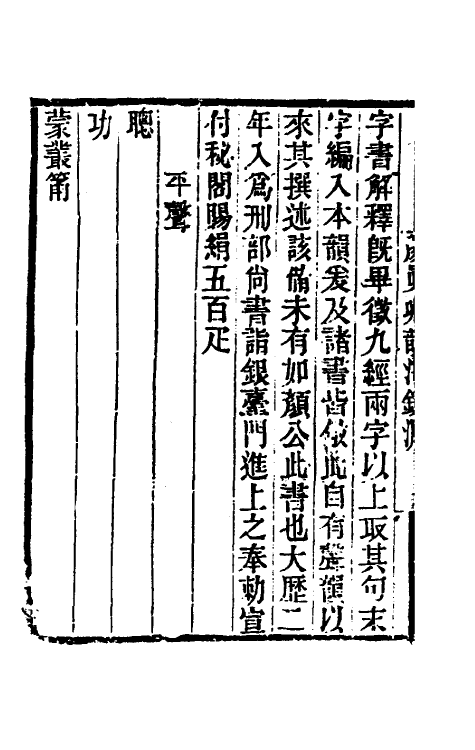 字書解釋既畢徵九經兩字以上取其句末
字編入本韻爰及諸書皆倣此自有聲韻以
來其撰述該備未有如顏公此書也大歷二
年入爲刑部尚書詣銀臺門進上之奉勅宣
付秘閣賜絹五百疋
平聲
聰
功
蒙叢筩